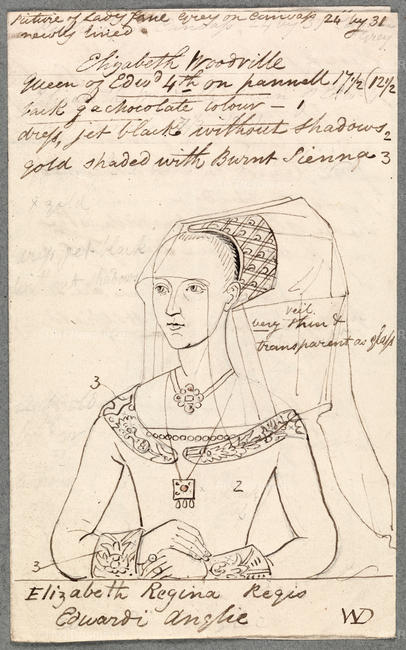 Picture of Lady Jane Grey on Canvass 24 by 31
newly lined
Elizabeth Woodville
Queen of Edwd 4th on pannell 17 1/2 (12 1/2
back a chocolate colour — 1
dress, jet black without shadows 2
gold shaded with Burnt Sienna 3
veil
very thin &
transparent as glass
3
2
3
Elizabeth Regina Regis
Edwardi Anglie
WD